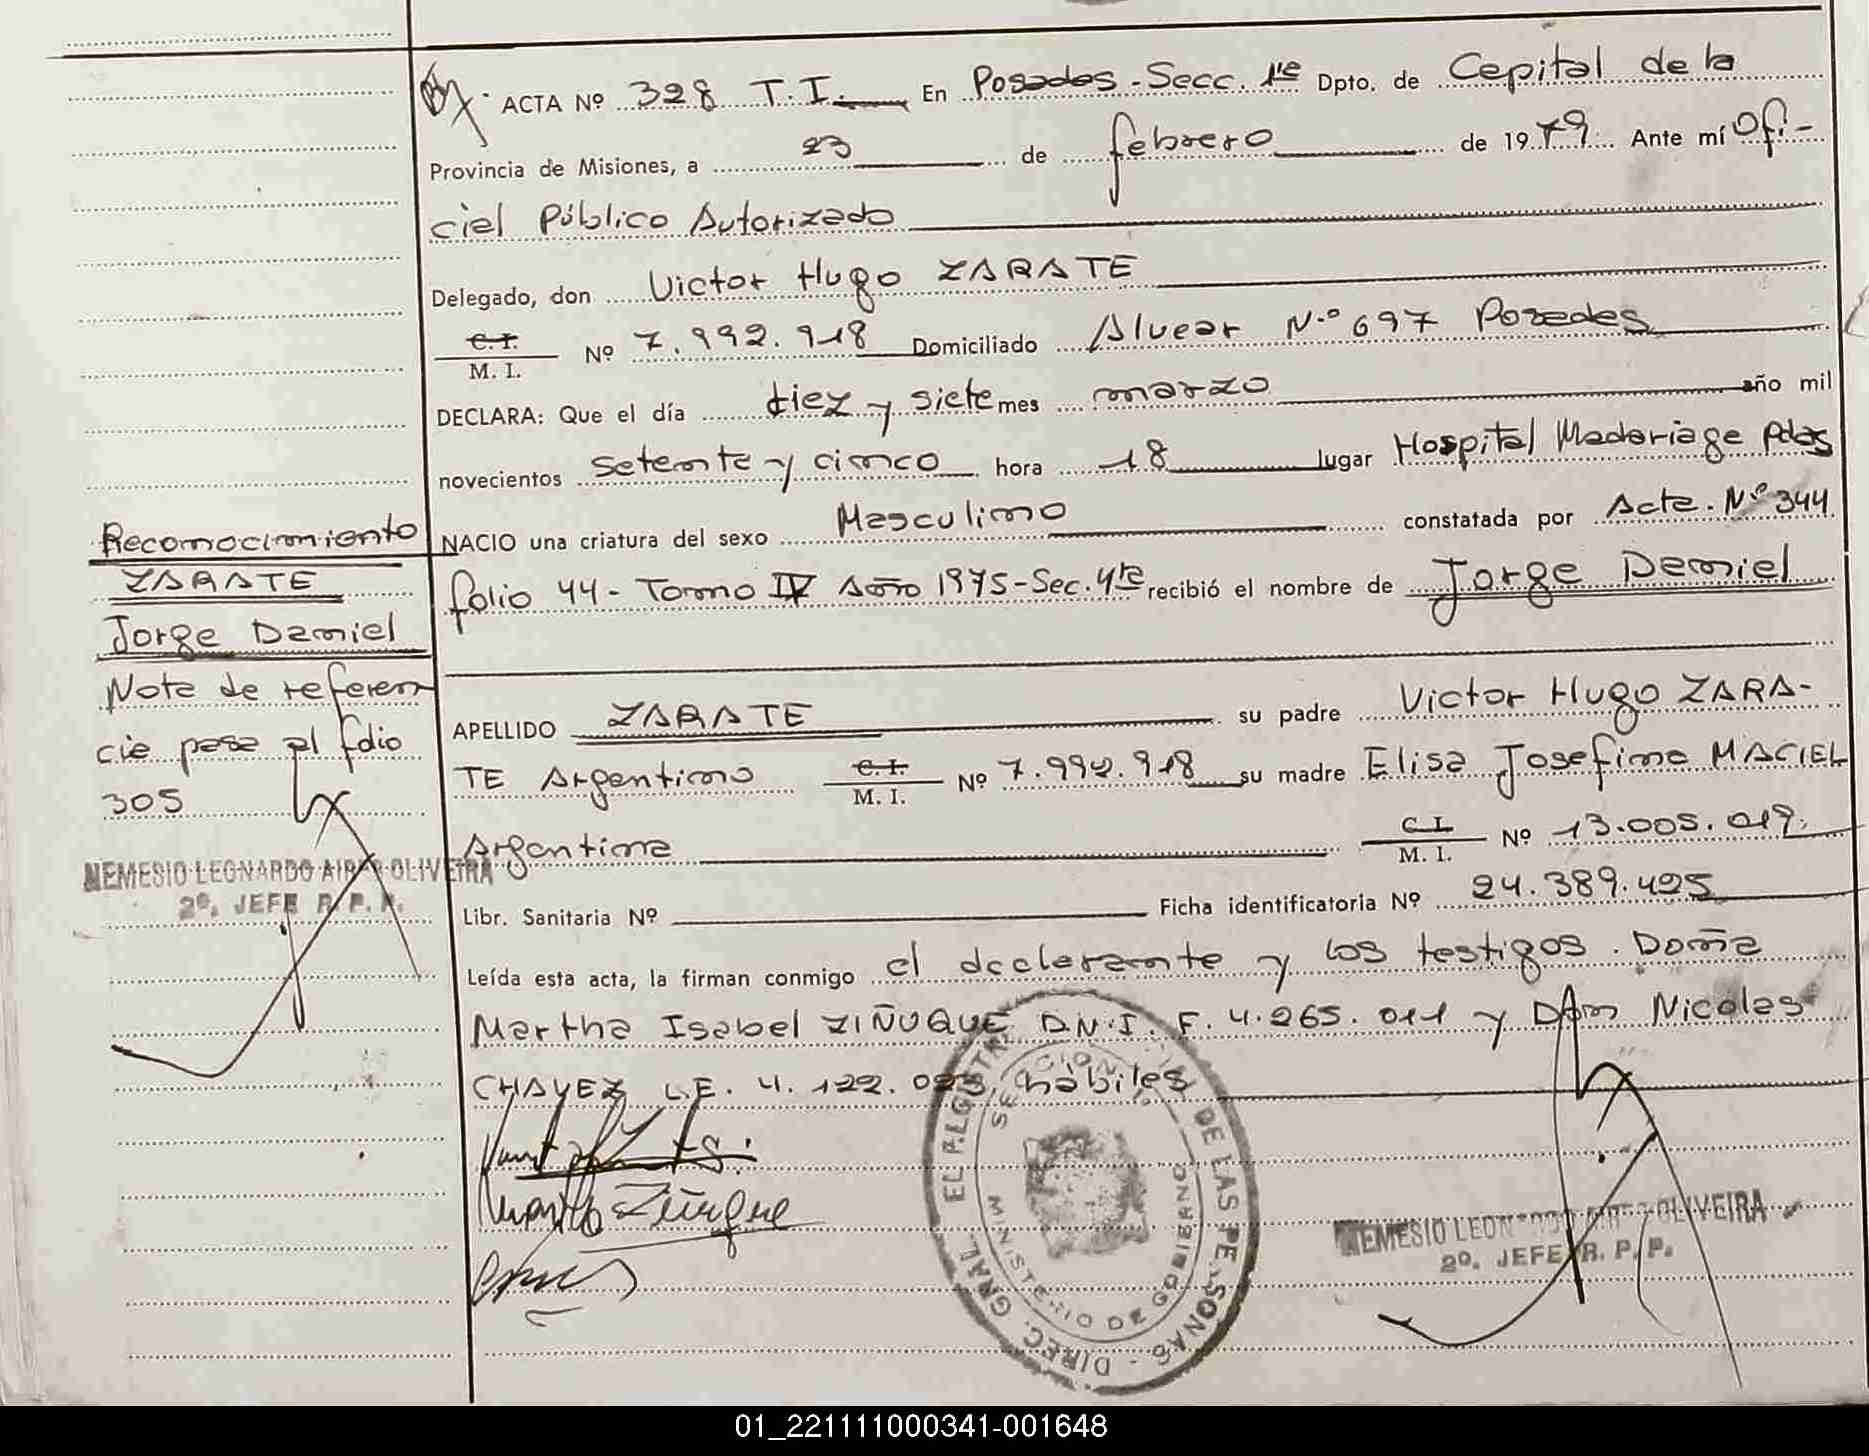 ACTA Nº 328 T.I. En Posadas - Secc. 1re Dpto. de Capital de la
Provincia de Misiones, a 23 de febrero de 1979. Ante mí Ofi-
cial Público Autorizado
Delegado, don Victor Hugo ZARATE
C.I.
M. I. Nº 7.992.918 Domiciliado Alvear N.º 697 Posadas
DECLARA: Que el día diez y siete mes marzo año mil
novecientos setenta y cinco hora 18 lugar Hospital Madariaga Pdas
NACIO una criatura del sexo Masculino constatada por Acta. Nº 344
folio 44 - Tomo IV Año 1975 - Sec. 4ta recibió el nombre de Jorge Daniel
APELLIDO ZARATE su padre Victor Hugo ZARA-
TE Argentino C.I. M. I. Nº 7.992.918 su madre Elisa Josefina MACIEL
Argentina C I. M. I. Nº 13.005.019.
Libr. Sanitaria Nº Ficha identificatoria Nº 24.389.425
Leída esta acta, la firman conmigo el declarante y los testigos. Doña
Martha Isabel ZIÑUQUE D.N.I. F. 4.265.011 y Don Nicolas
CHAVEZ L.E. 4. 122. 023, hábiles
Reconocimiento
ZARATE
Jorge Daniel
Nota de referen
cia pasa al folio
305
NEMESIO LEONARDO AIRES OLIVEIRA
2º. JEFE R. P. P.
Martha Ziñuque
DIREC. GRAL. DE LAS PERSONAS
MINISTERIO DE GOBIERNO
NEMESIO LEONARDO AIRES OLIVEIRA
2º. JEFE R. P. P.
01_221111000341-001648